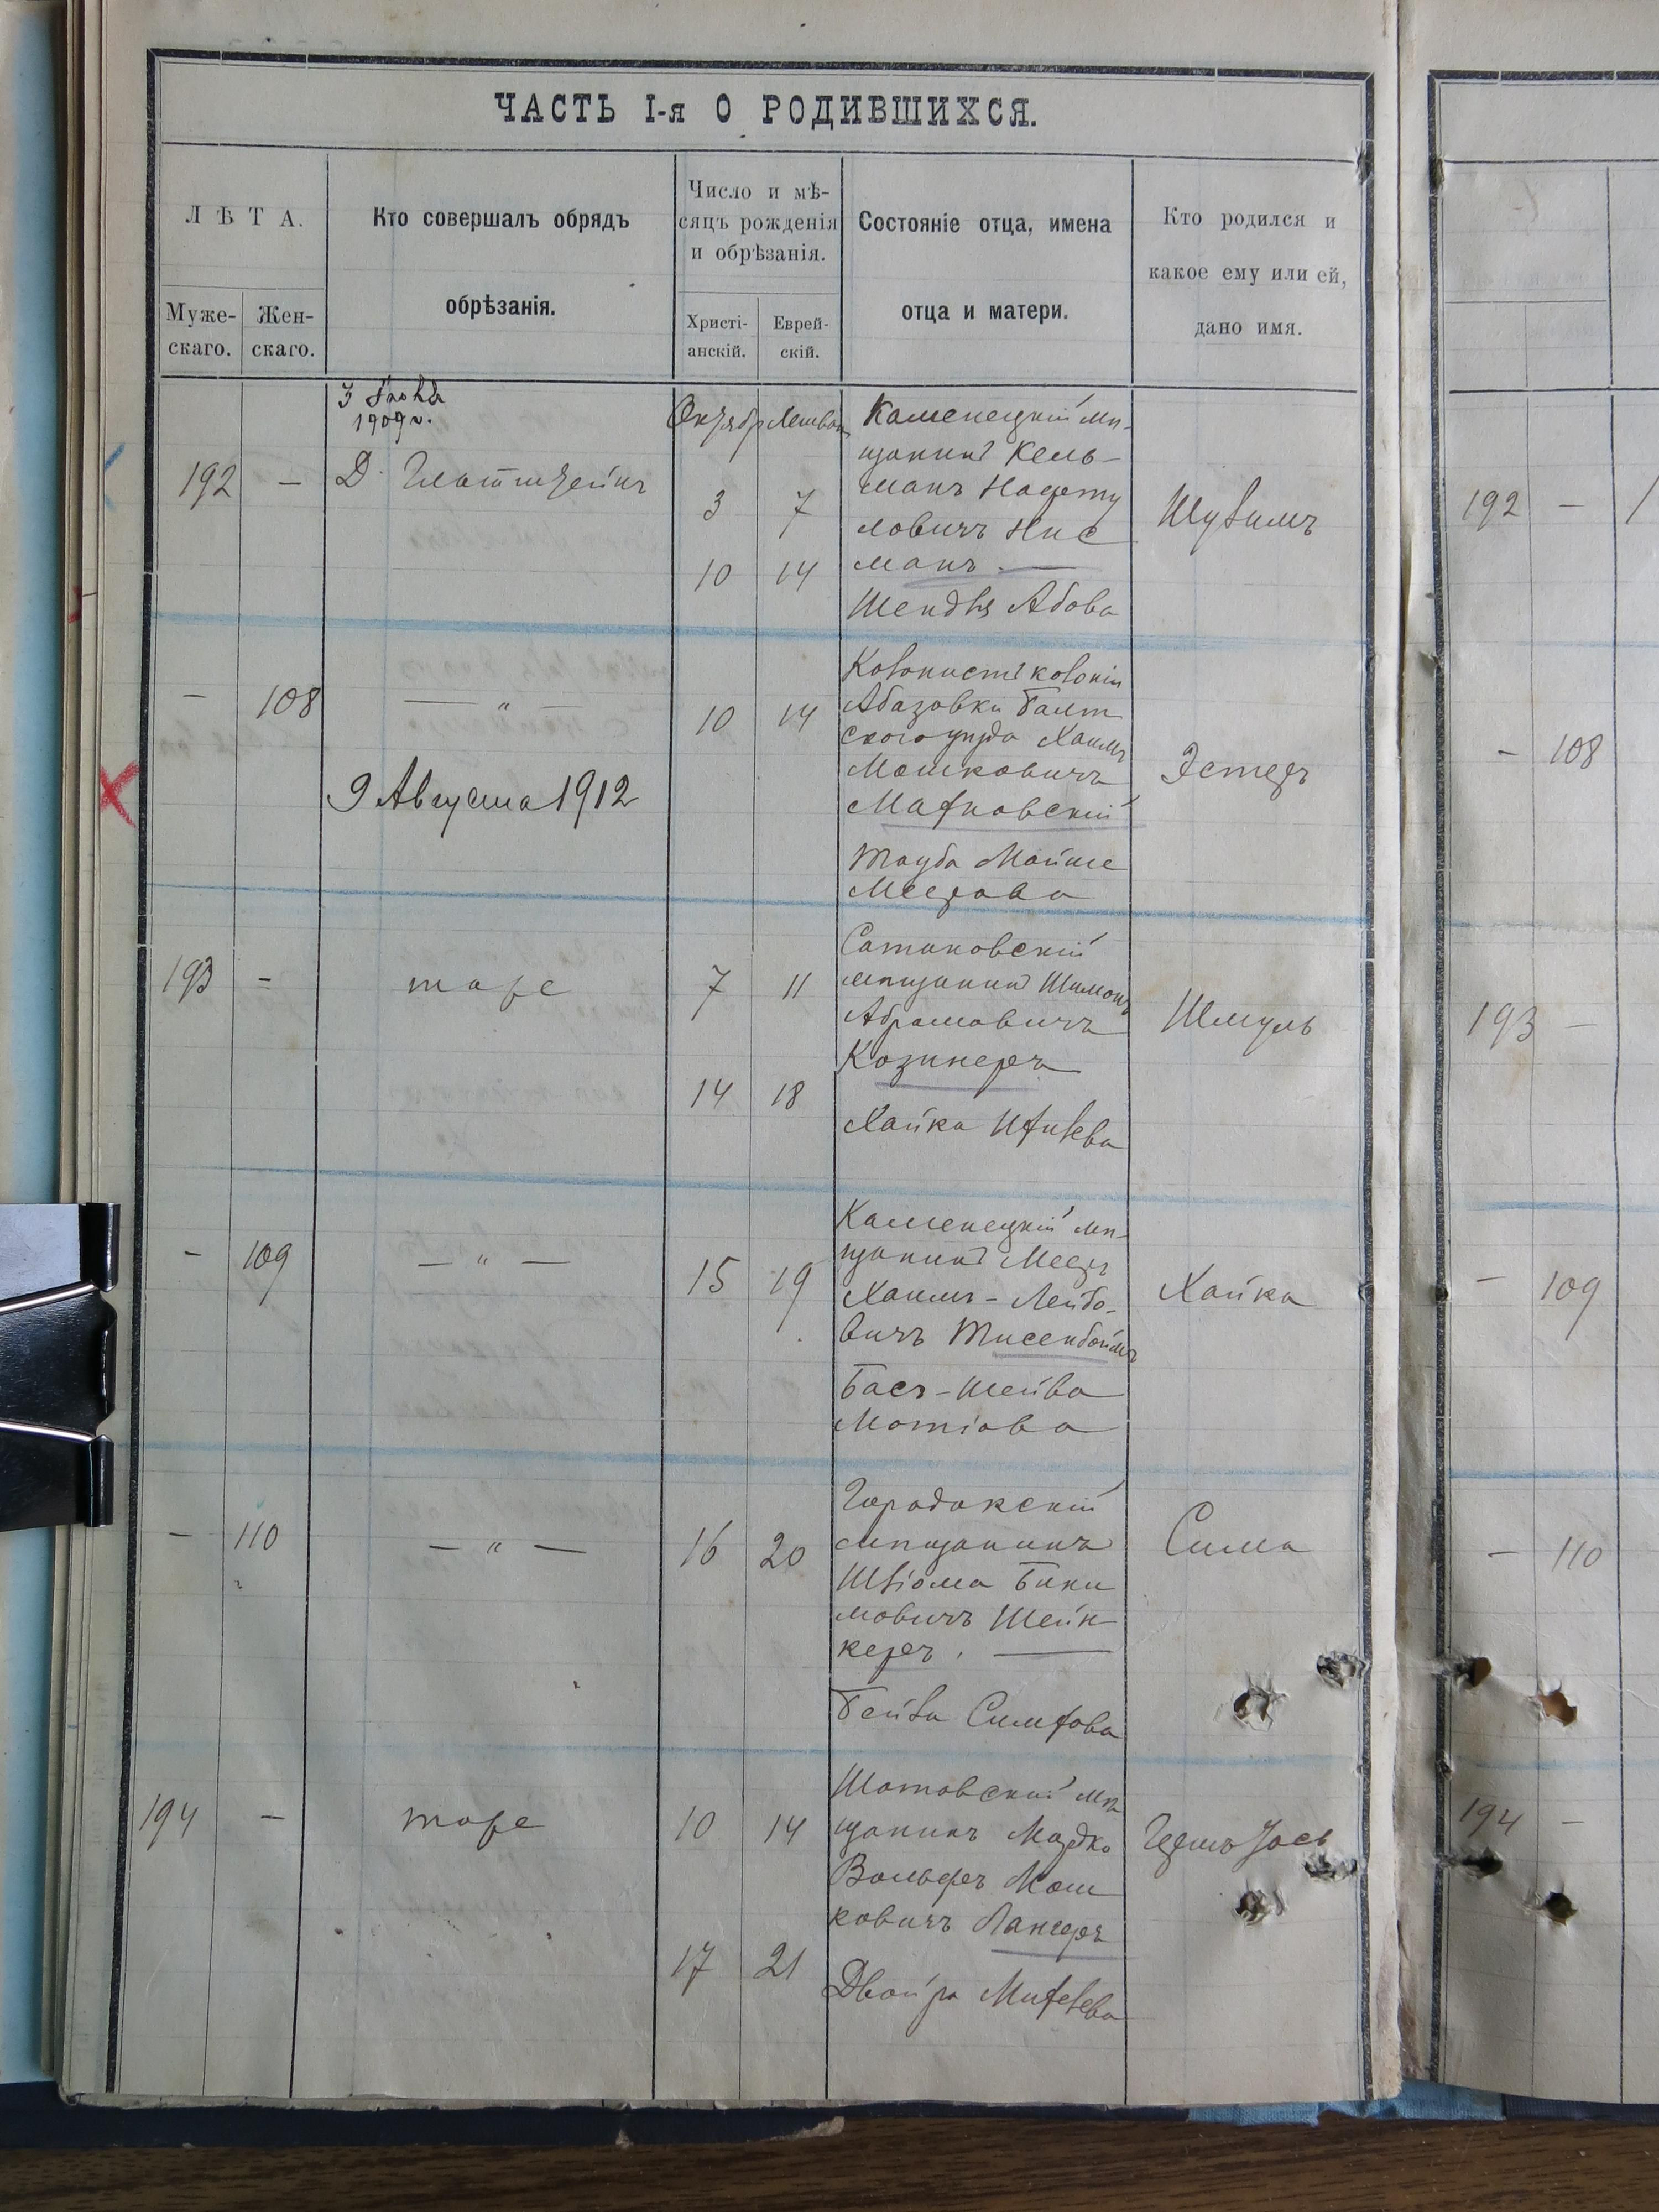 ЧАСТЬ I-я О РОДИВШИХСЯ.
ЛѢТА.
Муже-
скаго.
Жен-
скаго.
Кто совершалъ обрядъ
обрѣзанія.
Число и мѣ-
сяцъ рожденія
и обрѣзанія.
Христі-
анскій.
Еврей-
скій.
Состояніе отца, имена
отца и матери.
Кто родился и
какое ему или ей,
дано имя.
1909 г.
Октябр Хешван
192 —
3 7
10 14
Каменецкій мѣ-
щанинъ Кель-
манъ
ловичъ Нис
манъ. —
Шендля Абова
— 108
— " —
9 Августа 1912
10 14
Колонистъ колоніи
Абазовки Балт
скаго уѣзда Хаимъ
Мошковичъ
Мафновскій
Тауба Мойше
Меерова
Эстеръ
193 —
тоже
7 11
14 18
Сатановскій
мѣщанинъ Шимонъ
Абрамовичъ
Козинеръ
Хайка
Шмуль
— 109
— " —
15 19
Каменецкій мѣ-
щанинъ Мееръ
Хаимъ-Лейбо-
вичъ Тисенбоймъ
Бася-Шейва
Мотіова
Хайка
— 110
— " —
16 20
Городокскій
мѣщанинъ
Шліома
мовичъ Шейн
керъ. —
Бейла
Сима
194 —
тоже
10 14
17 21
Шатовскій мѣ
щанинъ Мордко
Вольфъ Мош
ковичъ Лангеръ
Двойра
Гершъ Іось
192 —
— 108
193 —
— 109
— 110
194 —